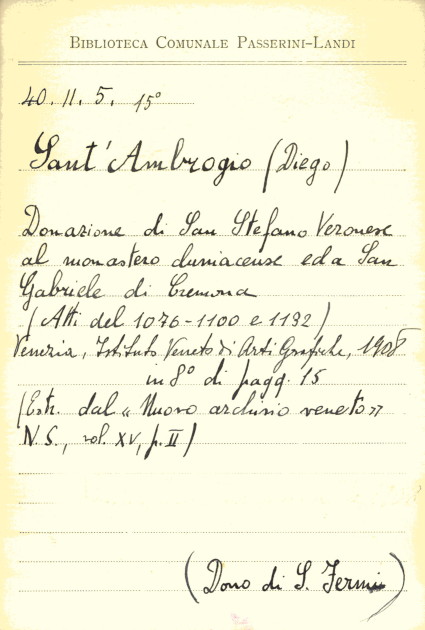 BIBLIOTECA COMUNALE PASSERINI-LANDI
40. II. 5. 15°
Sant'Ambrogio (Diego)
Donazione di San Stefano Veronese
al monastero cluniacense ed a San
Gabriele di Cremona
(Atti del 1076-1100 e 1132)
Venezia, Istituto Veneto di Arti Grafiche, 1908
in 8° di pagg. 15
(Estr. dal «Nuovo archivio veneto»
N.S., vol. XV, p. II)
(Dono di S. Fermi)